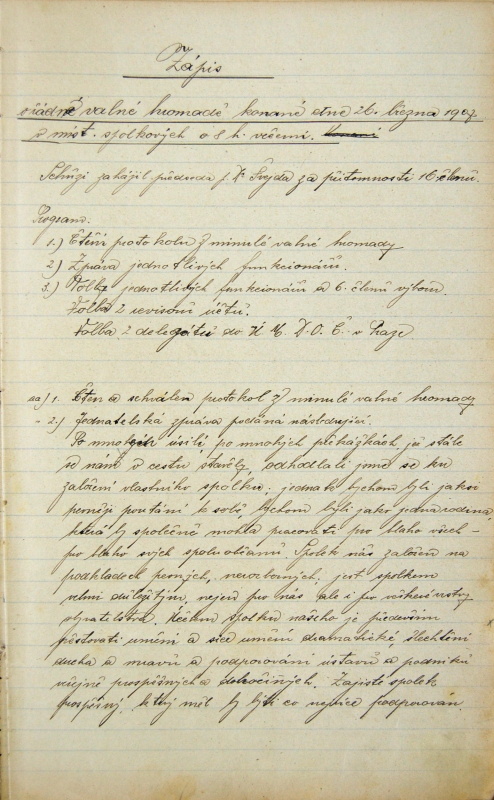 Zápis
řádné valné hromadě konané dne 26. března 1907
v míst. spolkových o 8 h. večerní.
Schůzi zahájil předseda p. Dr Švejda za přítomnosti 16 členů.
Program:
1.) Čtení protokolu z minulé valné hromady
2.) Zpráva jednotlivých funkcionářů.
3.) Volby jednotlivých funkcionářů a 6. členů výboru.
Volba 2 revisorů účtů.
Volba 2 delegátů do Ú. M. D. O. Č. v Praze
ad) 1. Čten a schválen protokol z minulé valné hromady
- 2.) Jednatelská zpráva podaná následující.
Po mnohém úsilí, po mnohých překážkách, jež stále
se nám v cestu stavěly, odhodlali jsme se ku
založení vlastního spolku, jednak bychom byli jaksi
pevněji poutáni k sobě, bychom byli jako jedna rodina,
která by společně mohla pracovati pro blaho všech -
pro blaho svých spoluobčanů. Spolek náš založen na
podkladech pevných, neochvějných, jest spolkem
velmi důležitým, nejen pro nás ale i pro všechny vrstvy
obyvatelstva. Účelem spolku našeho je především
pěstovati umění a sice umění dramatické, šlechtění
ducha a mravů a podporování ústavů a podniků
veřejně prospěšných a dobročinných. Zajisté spolek
prospěšný, který měl by býti co nejvíce podporován.